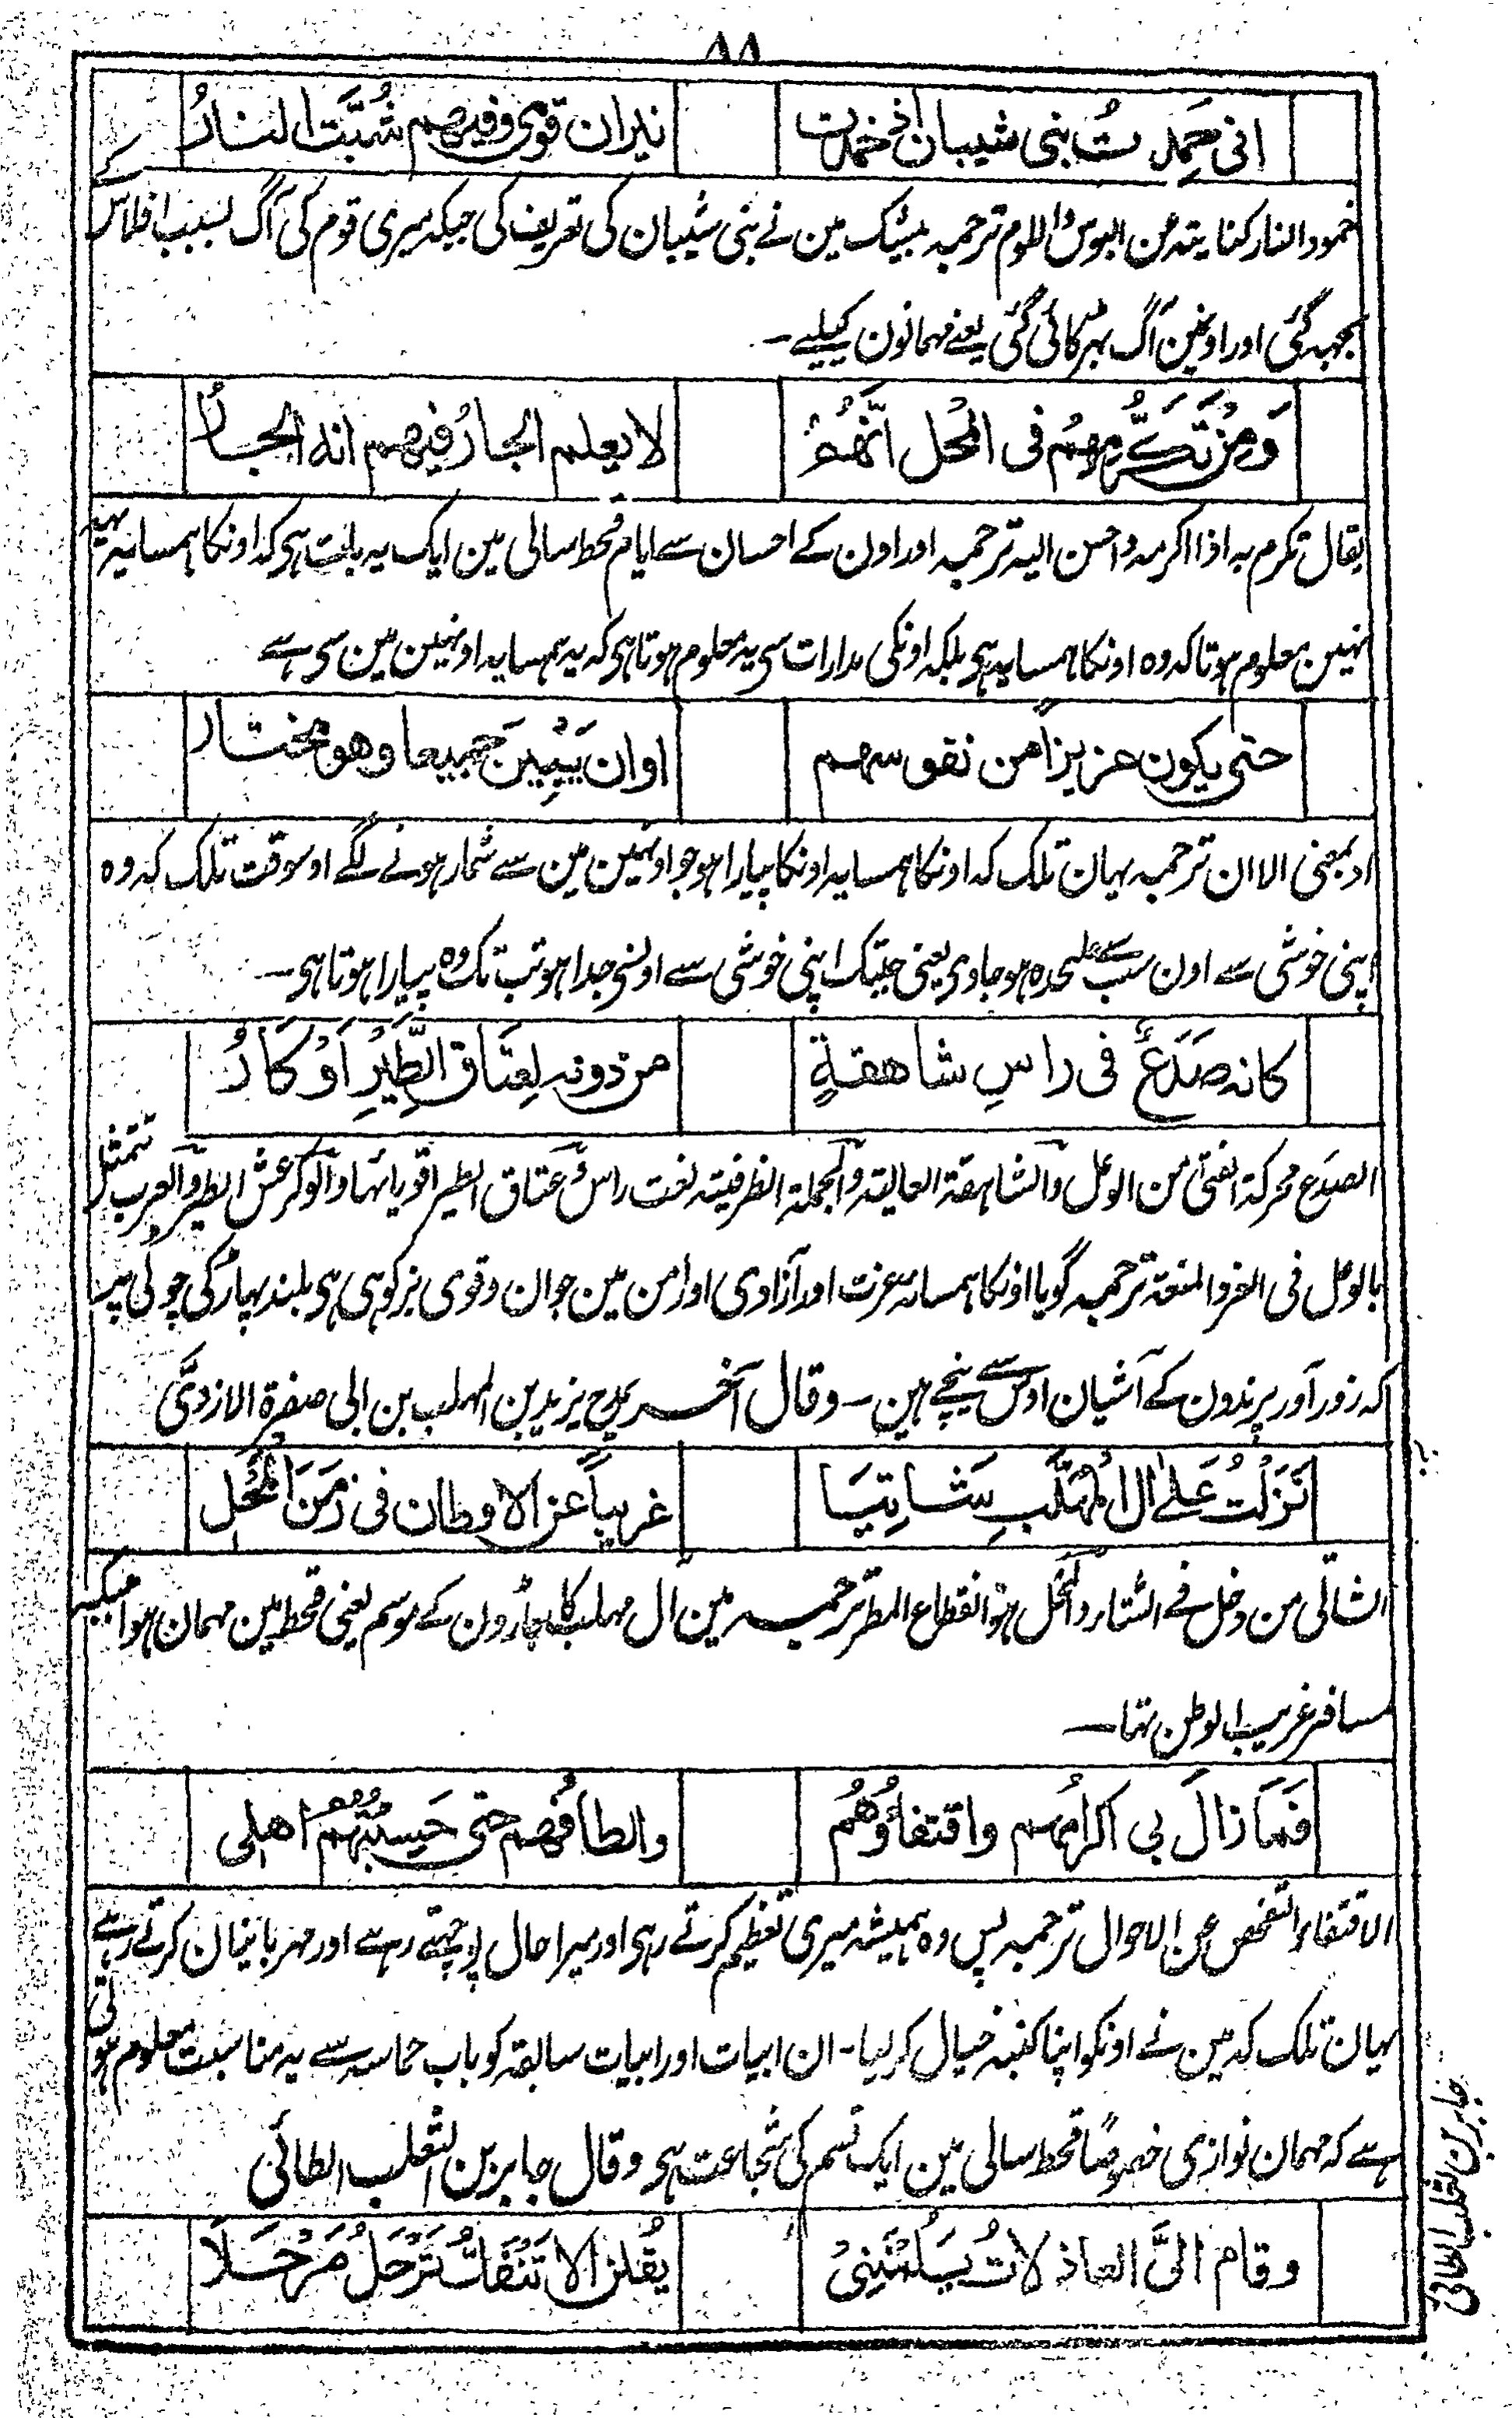 ۸۸
انی حَمِدتُ بنی شیبان اذ خمدت نیران قومی وفیهم شُبَّت النارُ
خمود النار کنایتہ عن البوس واللوم ترجمہ بیشک مین نے بنی شیبان کی تعریف کی جبکہ میری قوم کی آگ بسبب افلاس کے
بجھہ گئی اور اونمین آگ بہڑکائی گئی یعنے مہمانون کیلیے۔
وَمِنْ تَکَرُّمِهِمْ فی المَحْل اَنَّهُمُ لا یعلم الجارُ فیهم انه الجارُ
یقال تکرم بہ اذا اکرمہ واحسن الیہ ترجمہ اور اون کے احسان سے ایام قحط سالی مین ایک یہ بات ہی کہ اونکا ہمسایہ یہہ
نہین معلوم ہوتا کہ وہ اونکا ہمسایہ ہی بلکہ اونکی مدارات سی یہ معلوم ہوتا ہی کہ یہ ہمسایہ اونہین مین سی ہے
حتی یکون عزیزاً من نفوسهم او ان یَبِینَ جمیعا وهو مختار
او بمعنی الا ان ترجمہ یہان تلک کہ اونکا ہمسایہ اونکا پیارا ہو جو اونہین مین سے شمار ہونے لگے اوسوقت تلک کہ وہ
اپنی خوشی سے اون سب سے علیحدہ ہو جاوی یعنی جبتک اپنی خوشی سے اونسی جدا ہو تب تک وہ پیارا ہوتا ہی۔
کانه صَدَعٌ فی راسِ شاهقةٍ من دونه لِعِتَاق الطَّیْرِ اَوْکَارُ
الصدع محرکۃ الفتیٰ من الوعل والشاہقۃ العالیۃ والجملۃ الظرفیۃ نعت راس وعتاق الطیر اقویائہا والوکر عش الطیر والعرب تتمثل
بالوعل فی العز والمنعۃ ترجمہ گویا اونکا ہمسایہ عزت اور آزادی اور امن مین جوان و قوی بز کوہی ہی بلند پہاڑ کی چوٹی پر
کہ زور آور پرندون کے آشیان اوس سے نیچے ہین۔ وقال آخر یمدح یزید بن المہلب بن ابی صفرۃ الازدیّ
نَزَلْتُ عَلیٰ اٰل المُهَلَّبِ شَاتِیًا غریباً عن الاوطان فی زَمَنِ المَحْلِ
الشاتی من دخل فے الشتاء والمحل ہو انقطاع المطر ترجمہ مین آل مہلب کا جاڑون کے موسم یعنی قحط مین مہمان ہوا جبکہ
مسافر غریب الوطن تہا۔
فَمَا زالَ بی اکرامُهم واقتفاؤُهُم والطافُهم حتی حَسِبْتُهُمُ اهلی
الاقتفاء التفحص عن الاحوال ترجمہ پس وہ ہمیشہ میری تعظیم کرتے رہی اور میرا حال پوچہتے رہے اور مہربانیان کرتے رہے
یہان تلک کہ مین نے اونکو اپنا کنبہ خیال کر لیا۔ ان ابیات اور ابیات سابقہ کو باب حماسہ سے یہ مناسبت معلوم ہوتی
ہے کہ مہمان نوازی خصوصًا قحط سالی مین ایک قسم کی شجاعت ہی وقال جابر بن الثعلب الطائی
وقام الیَّ العاذلاتُ یَلُمْنَنِیْ یَقُلن الا تَنْفَکُّ تَرْحَلُ مَرْحَلَا
جابر بن الثعلب الطائی